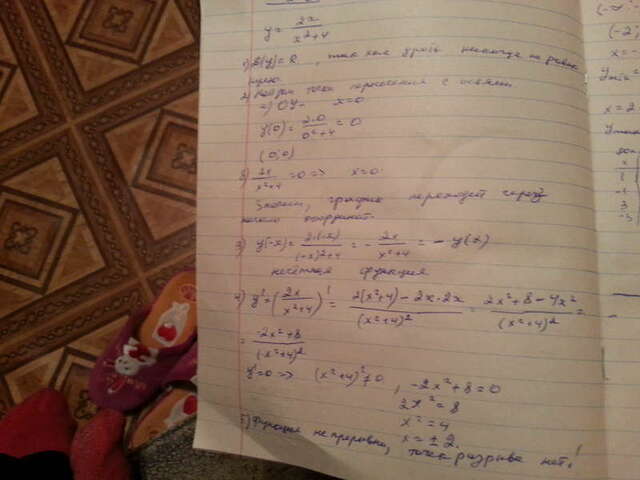 y = 2x / x²+4
1) D(y) = R, так как дробь никогда не равна
нулю.
2) Найдём точки пересечения с осями
а) OY- x=0
y(0) = 2·0 / 0²+4 = 0
(0;0)
б) 2x / x²+4 = 0 => x=0
Значит, график переходит через
начало координат.
3) y(-x) = 2·(-x) / (-x)²+4 = - 2x / x²+4 = - y(x)
нечётная функция
4) y' = (2x / x²+4)' = 2(x²+4) - 2x·2x / (x²+4)² = 2x²+8-4x² / (x²+4)² =
= -2x²+8 / (x²+4)²
y'=0 => (x²+4)²≠0, -2x²+8=0
2x²=8
x²=4
x=±2.
5) Функция непрерывна, точек разрыва нет!
(-2;
x=-
x=2
x
1
-1
3
-3